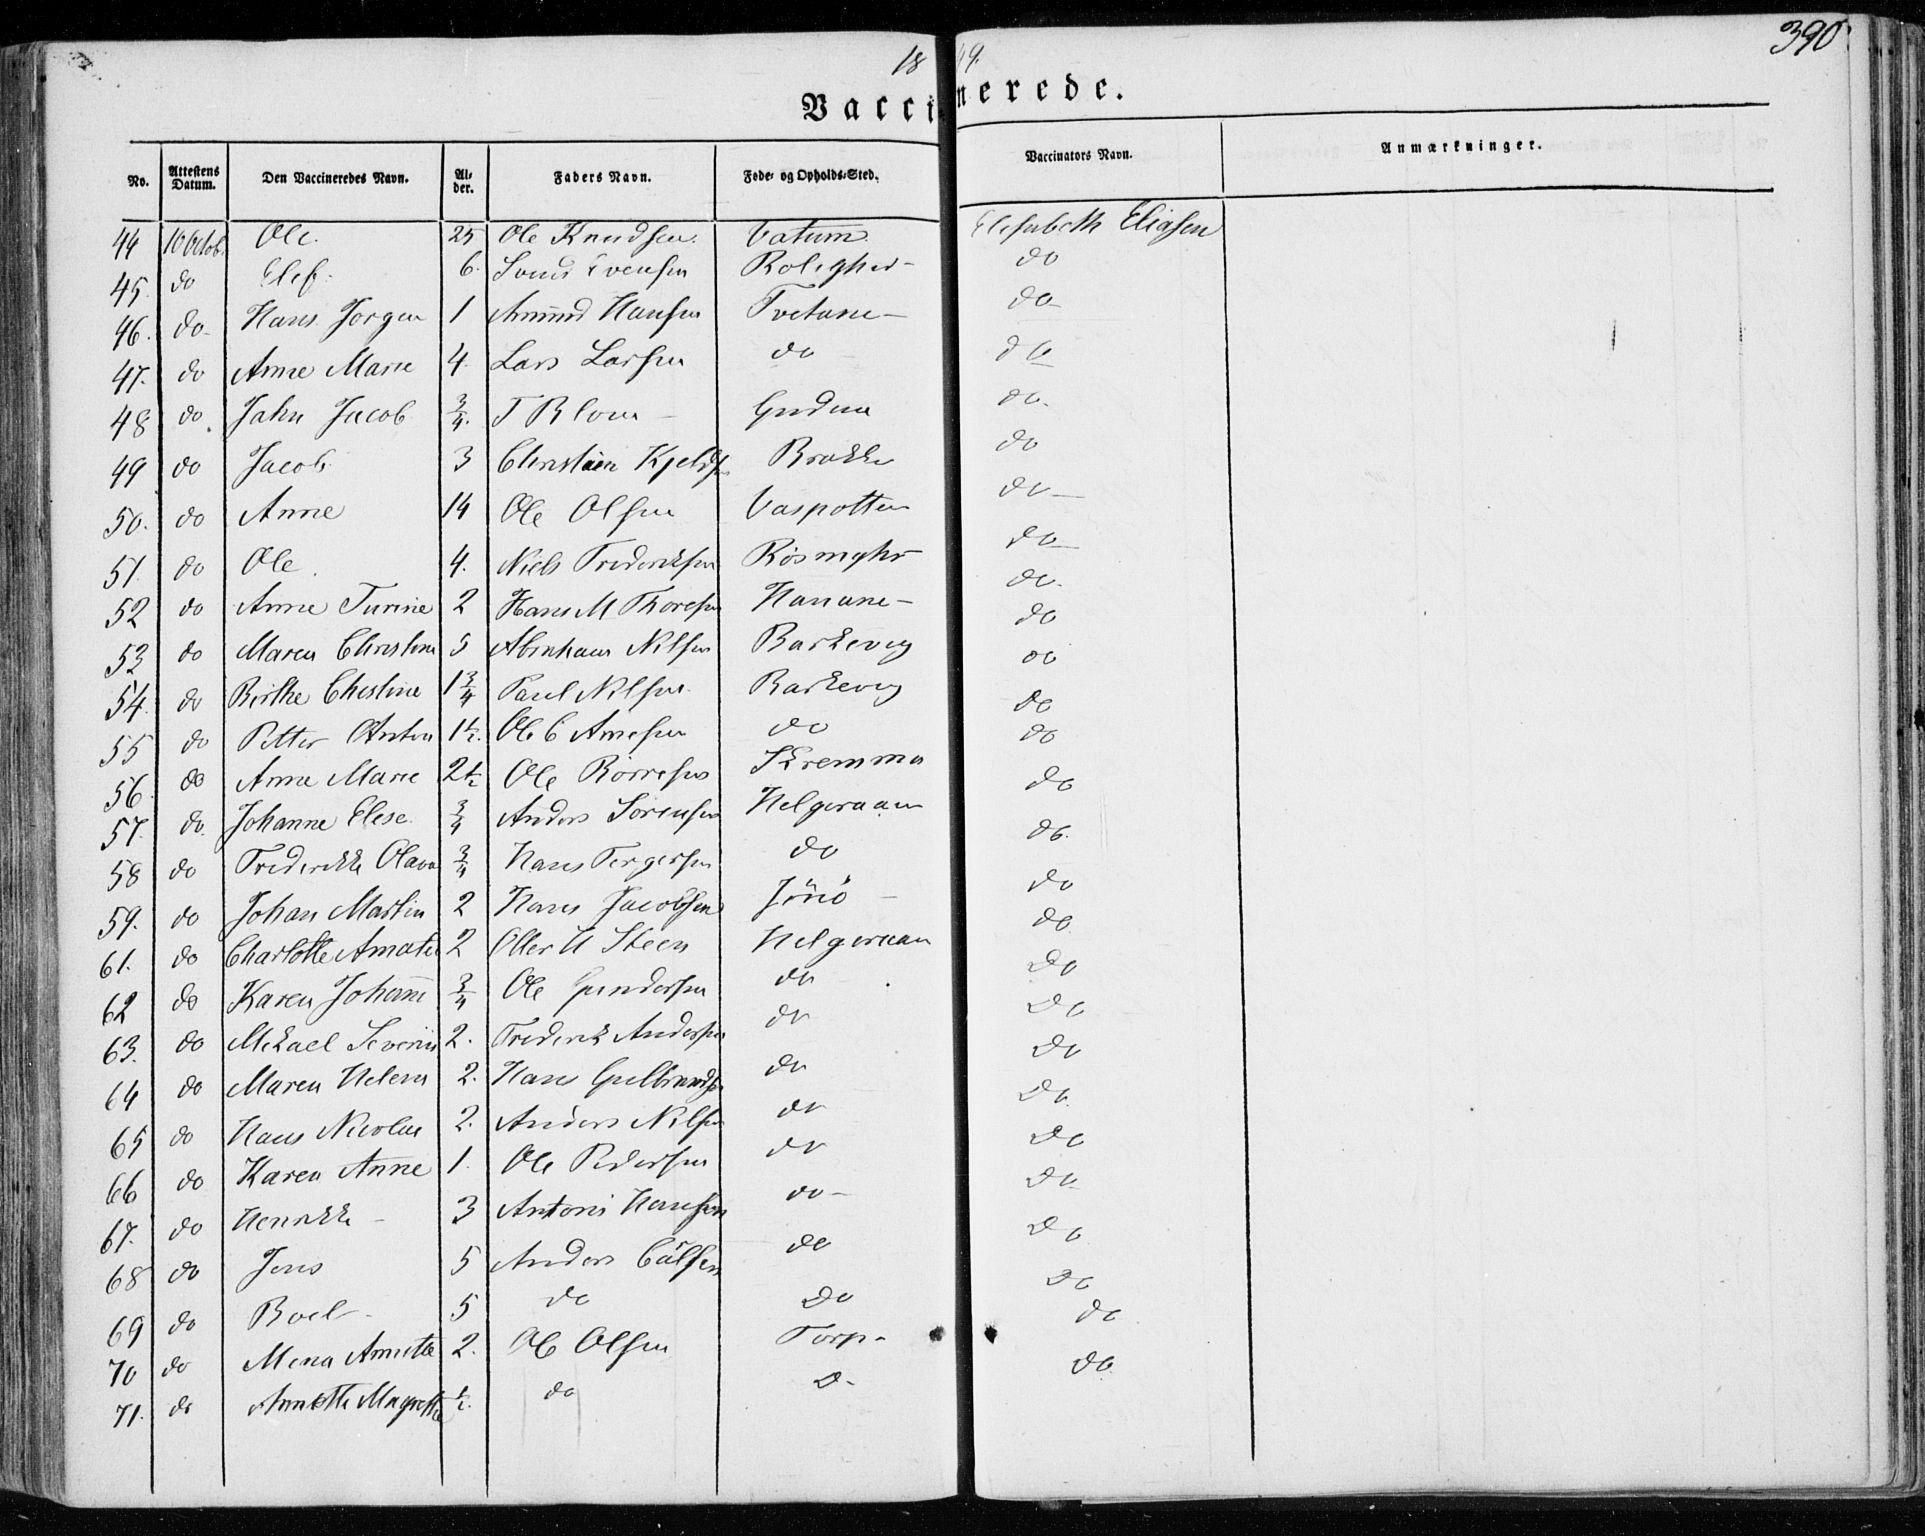 390
1849.
Vaccinerede.
No. Attestens Datum. Den Vaccineredes Navn. Alder. Faders Navn. Føde- og Opholds-Sted. Vaccinators Navn. Anmærkninger.
44 10 Octob. Ole. 25 Ole Knudsen. Vatum Elisabeth Eliasen
45 do Elef. 6. Svend Evensen do
46. do Hans Jorgen 1 Amund Hansen Tvetane do
47. do Anne Marie 4. Lars Larsen do do
48 do. Jahn Jacob 3/4. T Blom do.
49 do Jacob 3 Christian Kjelds Brokke do
50. do Anne 14 Ole Olsen Vaspotten do
51 do Ole. 4. Niels Frederiksen do
52 do Anne Turine 2 Hans M Thoresen Hanane do.
53 do Maren Christine 5 Abraham Nilsen Barkevig do
54 do Birthe Chestine 1 3/4 Paul Nilsen Barkevig do
55 do Petter Anton 1 1/2. Ole C Arnesen do do
56. do Anne Marie 2 1/2 Ole Borresen Skremma do
57. do Johanne Elese 3/4 Anders Sørensen Helgeraaen do
58 do Frederikke Olava 3/4 Hans Tergersen do do.
59. do Johan Martin 2 Hans Jacobsen do
61. do Charlotte Amalie 2 Oller H Steen Helgeraaen do
62 do Karen Johanne 3/4 Ole Gundersen do do
63. do Mekael Severin 2. Frederik Andersen do do
64 do Maren Helena 2. Hans Gulbrandsen do do
65 do Hans Nicolai 2. Anders Nilsen do do
66 do Karen Anne 1. Ole Pedersen do do
67. do Henrikke 3 Antoni Hansen do do
68 do Jens 5 Anders do do
69 do Boel 5 do do do
70 do Mina Annette 2. Ole Olsen Torp do
71. do Annette Magrethe 1/2. do do do